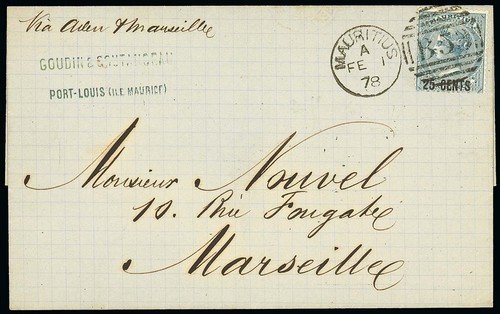 Via Aden & Marseille
GOUDIN &
PORT-LOUIS (ILE MAURICE)
MAURITIUS
A
FE 1
78
MAURITIUS
B53
25 CENTS
Monsieur Nouvel
10. Rue Fongate
Marseille